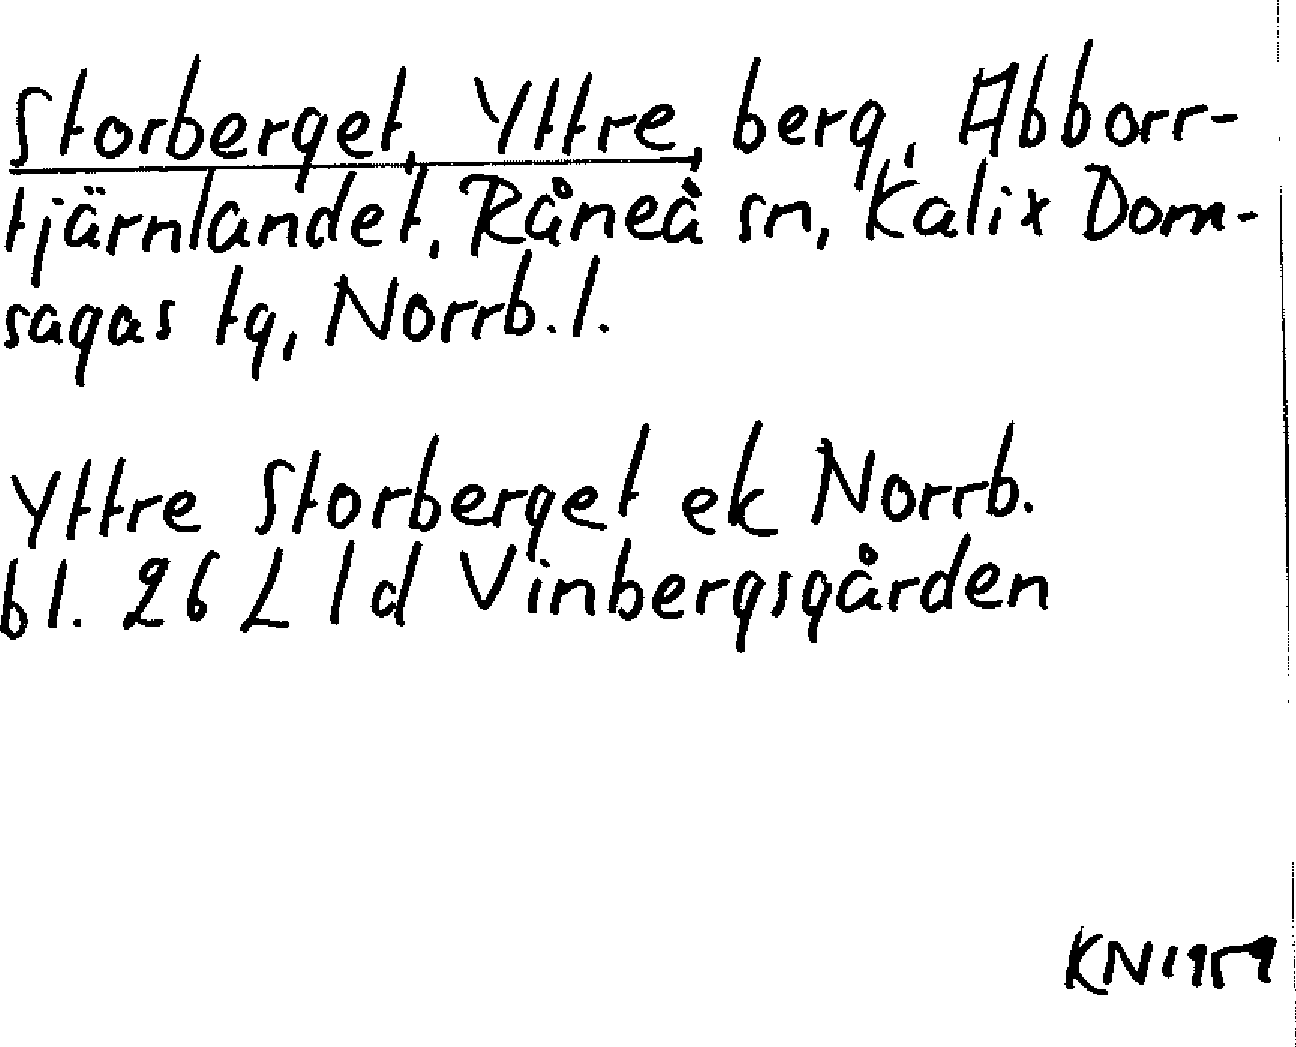 Storberget, Yttre, berg, Abborr-
tjärnlandet, Råneå sn, Kalix Dom-
sagas tg, Norrb. l.
Yttre Storberget ek Norrb.
bl. 26 L 1d Vinbergsgården
KN 1959